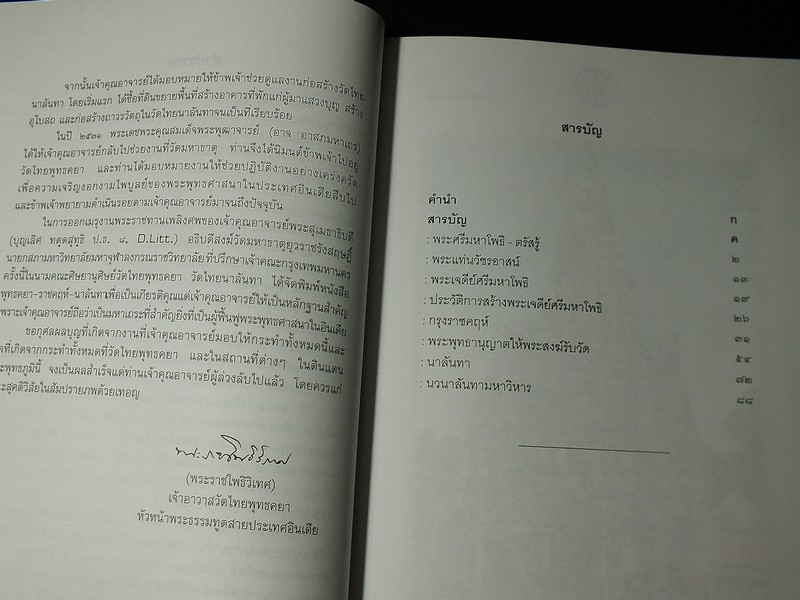 จากนั้นเจ้าคุณอาจารย์ได้มอบหมายให้ข้าพเจ้าช่วยดูแลงานก่อสร้างวัดไทย
นาลันทา โดยเริ่มแรก ได้ซื้อที่ดินขยายพื้นที่สร้างอาคารที่พักแก่ผู้มาแสวงบุญ สร้าง
อุโบสถ และก่อสร้างถาวรวัตถุในวัดไทยนาลันทาจนเป็นที่เรียบร้อย
ในปี ๒๕๓๑ พระเดชพระคุณสมเด็จพระพุฒาจารย์ (อาจ อาสภมหาเถร)
ได้ให้เจ้าคุณอาจารย์กลับไปช่วยงานที่วัดมหาธาตุ ท่านจึงได้นิมนต์ข้าพเจ้าไปอยู่
วัดไทยพุทธคยา และท่านได้มอบหมายงานให้ช่วยปฏิบัติงานอย่างเคร่งครัด
เพื่อความเจริญงอกงามไพบูลย์ของพระพุทธศาสนาในประเทศอินเดียสืบไป
และข้าพเจ้าพยายามดำเนินรอยตามเจ้าคุณอาจารย์มาจนถึงปัจจุบัน
ในการออกเมรุงานพระราชทานเพลิงศพของเจ้าคุณอาจารย์พระสุเมธาธิบดี
(บุญเลิศ ทตฺตสุทฺธิ ป.ธ. ๘, D.Litt.) อธิบดีสงฆ์วัดมหาธาตุยุวราชรังสฤษฎิ์
นายกสภามหาวิทยาลัยมหาจุฬาลงกรณราชวิทยาลัย ที่ปรึกษาเจ้าคณะกรุงเทพมหานคร
ครั้งนี้ในนามคณะศิษยานุศิษย์วัดไทยพุทธคยา วัดไทยนาลันทา ได้จัดพิมพ์หนังสือ
พุทธคยา-ราชคฤห์-นาลันทาเพื่อเป็นเกียรติคุณแด่เจ้าคุณอาจารย์ให้เป็นหลักฐานสำคัญ
เพราะเจ้าคุณอาจารย์ถือว่าเป็นมหาเถระที่สำคัญยิ่งที่เป็นผู้ฟื้นฟูพระพุทธศาสนาในอินเดีย
ขอกุศลผลบุญที่เกิดจากงานที่เจ้าคุณอาจารย์มอบให้กระทำทั้งหมดนี้และ
ที่เกิดจากกระทำทั้งหมดที่วัดไทยพุทธคยา และในสถานที่ต่างๆ ในดินแดน
พุทธภูมินี้ จงเป็นผลสำเร็จแด่ท่านเจ้าคุณอาจารย์ผู้ล่วงลับไปแล้ว โดยควรแก่
สุคติวิสัยในสัมปรายภพด้วยเทอญ
(พระราชโพธิวิเทศ)
เจ้าอาวาสวัดไทยพุทธคยา
หัวหน้าพระธรรมทูตสายประเทศอินเดีย
สารบัญ
คำนำ ก
สารบัญ ค
: พระศรีมหาโพธิ - ตรัสรู้ ๒
: พระแท่นวัชรอาสน์ ๑๓
: พระเจดีย์ศรีมหาโพธิ ๑๙
: ประวัติการสร้างพระเจดีย์ศรีมหาโพธิ ๒๖
: กรุงราชคฤห์ ๓๑
: พระพุทธานุญาตให้พระสงฆ์รับวัด ๕๔
: นาลันทา ๗๒
: นวนาลันทามหาวิหาร ๘๘